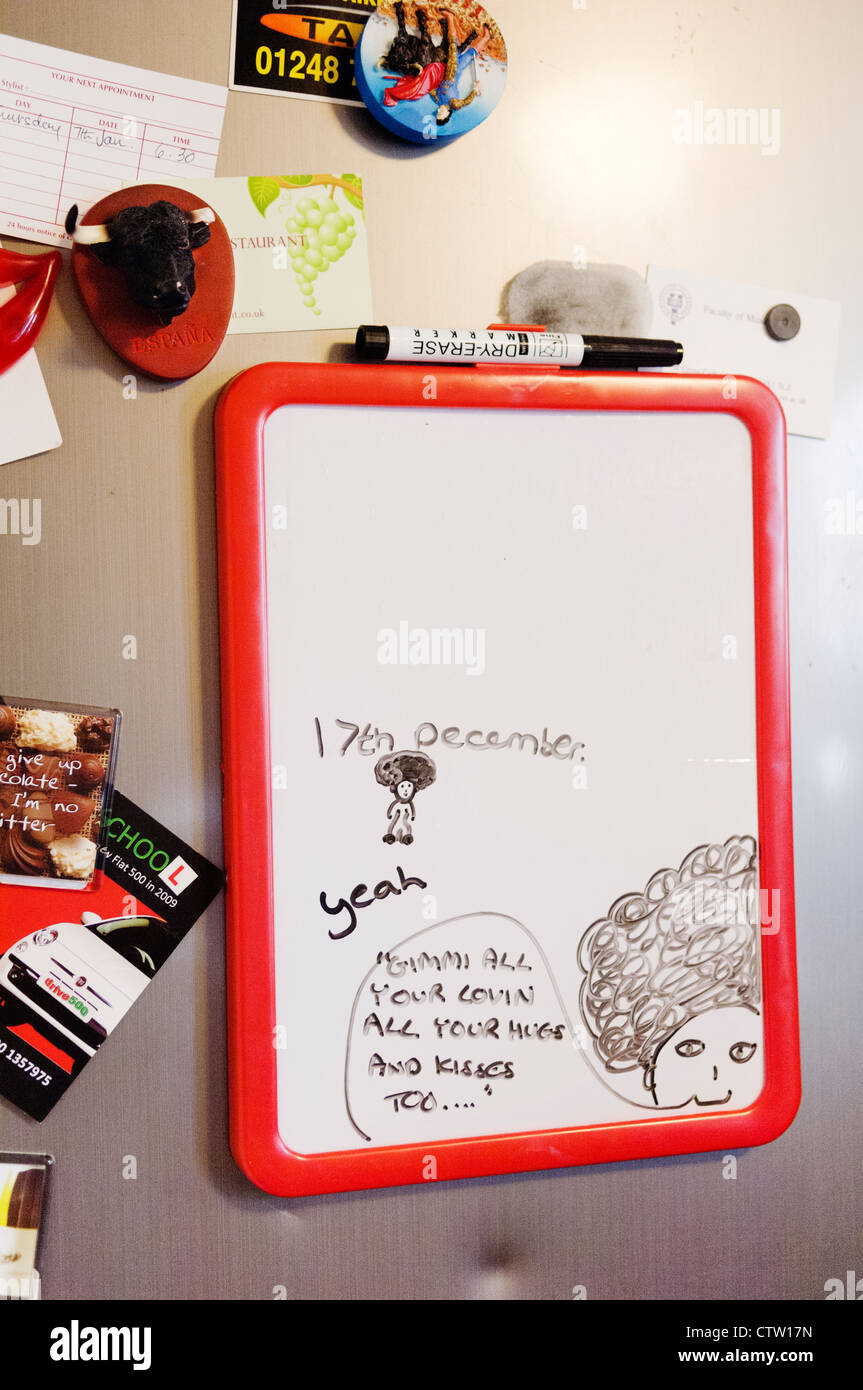 TA
01248
YOUR NEXT APPOINTMENT
Stylist:
DAY
DATE
TIME
7th Jan.
6.30
24 hours notice of
STAURANT
t.co.uk
ESPAÑA
DRY-ERASE
MARKER
Fine
Faculty of
17th December.
yeah
"GIMMI ALL
YOUR LOVIN
ALL YOUR HUGS
AND KISSES
TOO...."
give up
colate -
I'm no
itter
CHOOL
L
ew Fiat 500 in 2009
drive500
0 1357975
alamy
Image ID: CTW17N
www.alamy.com